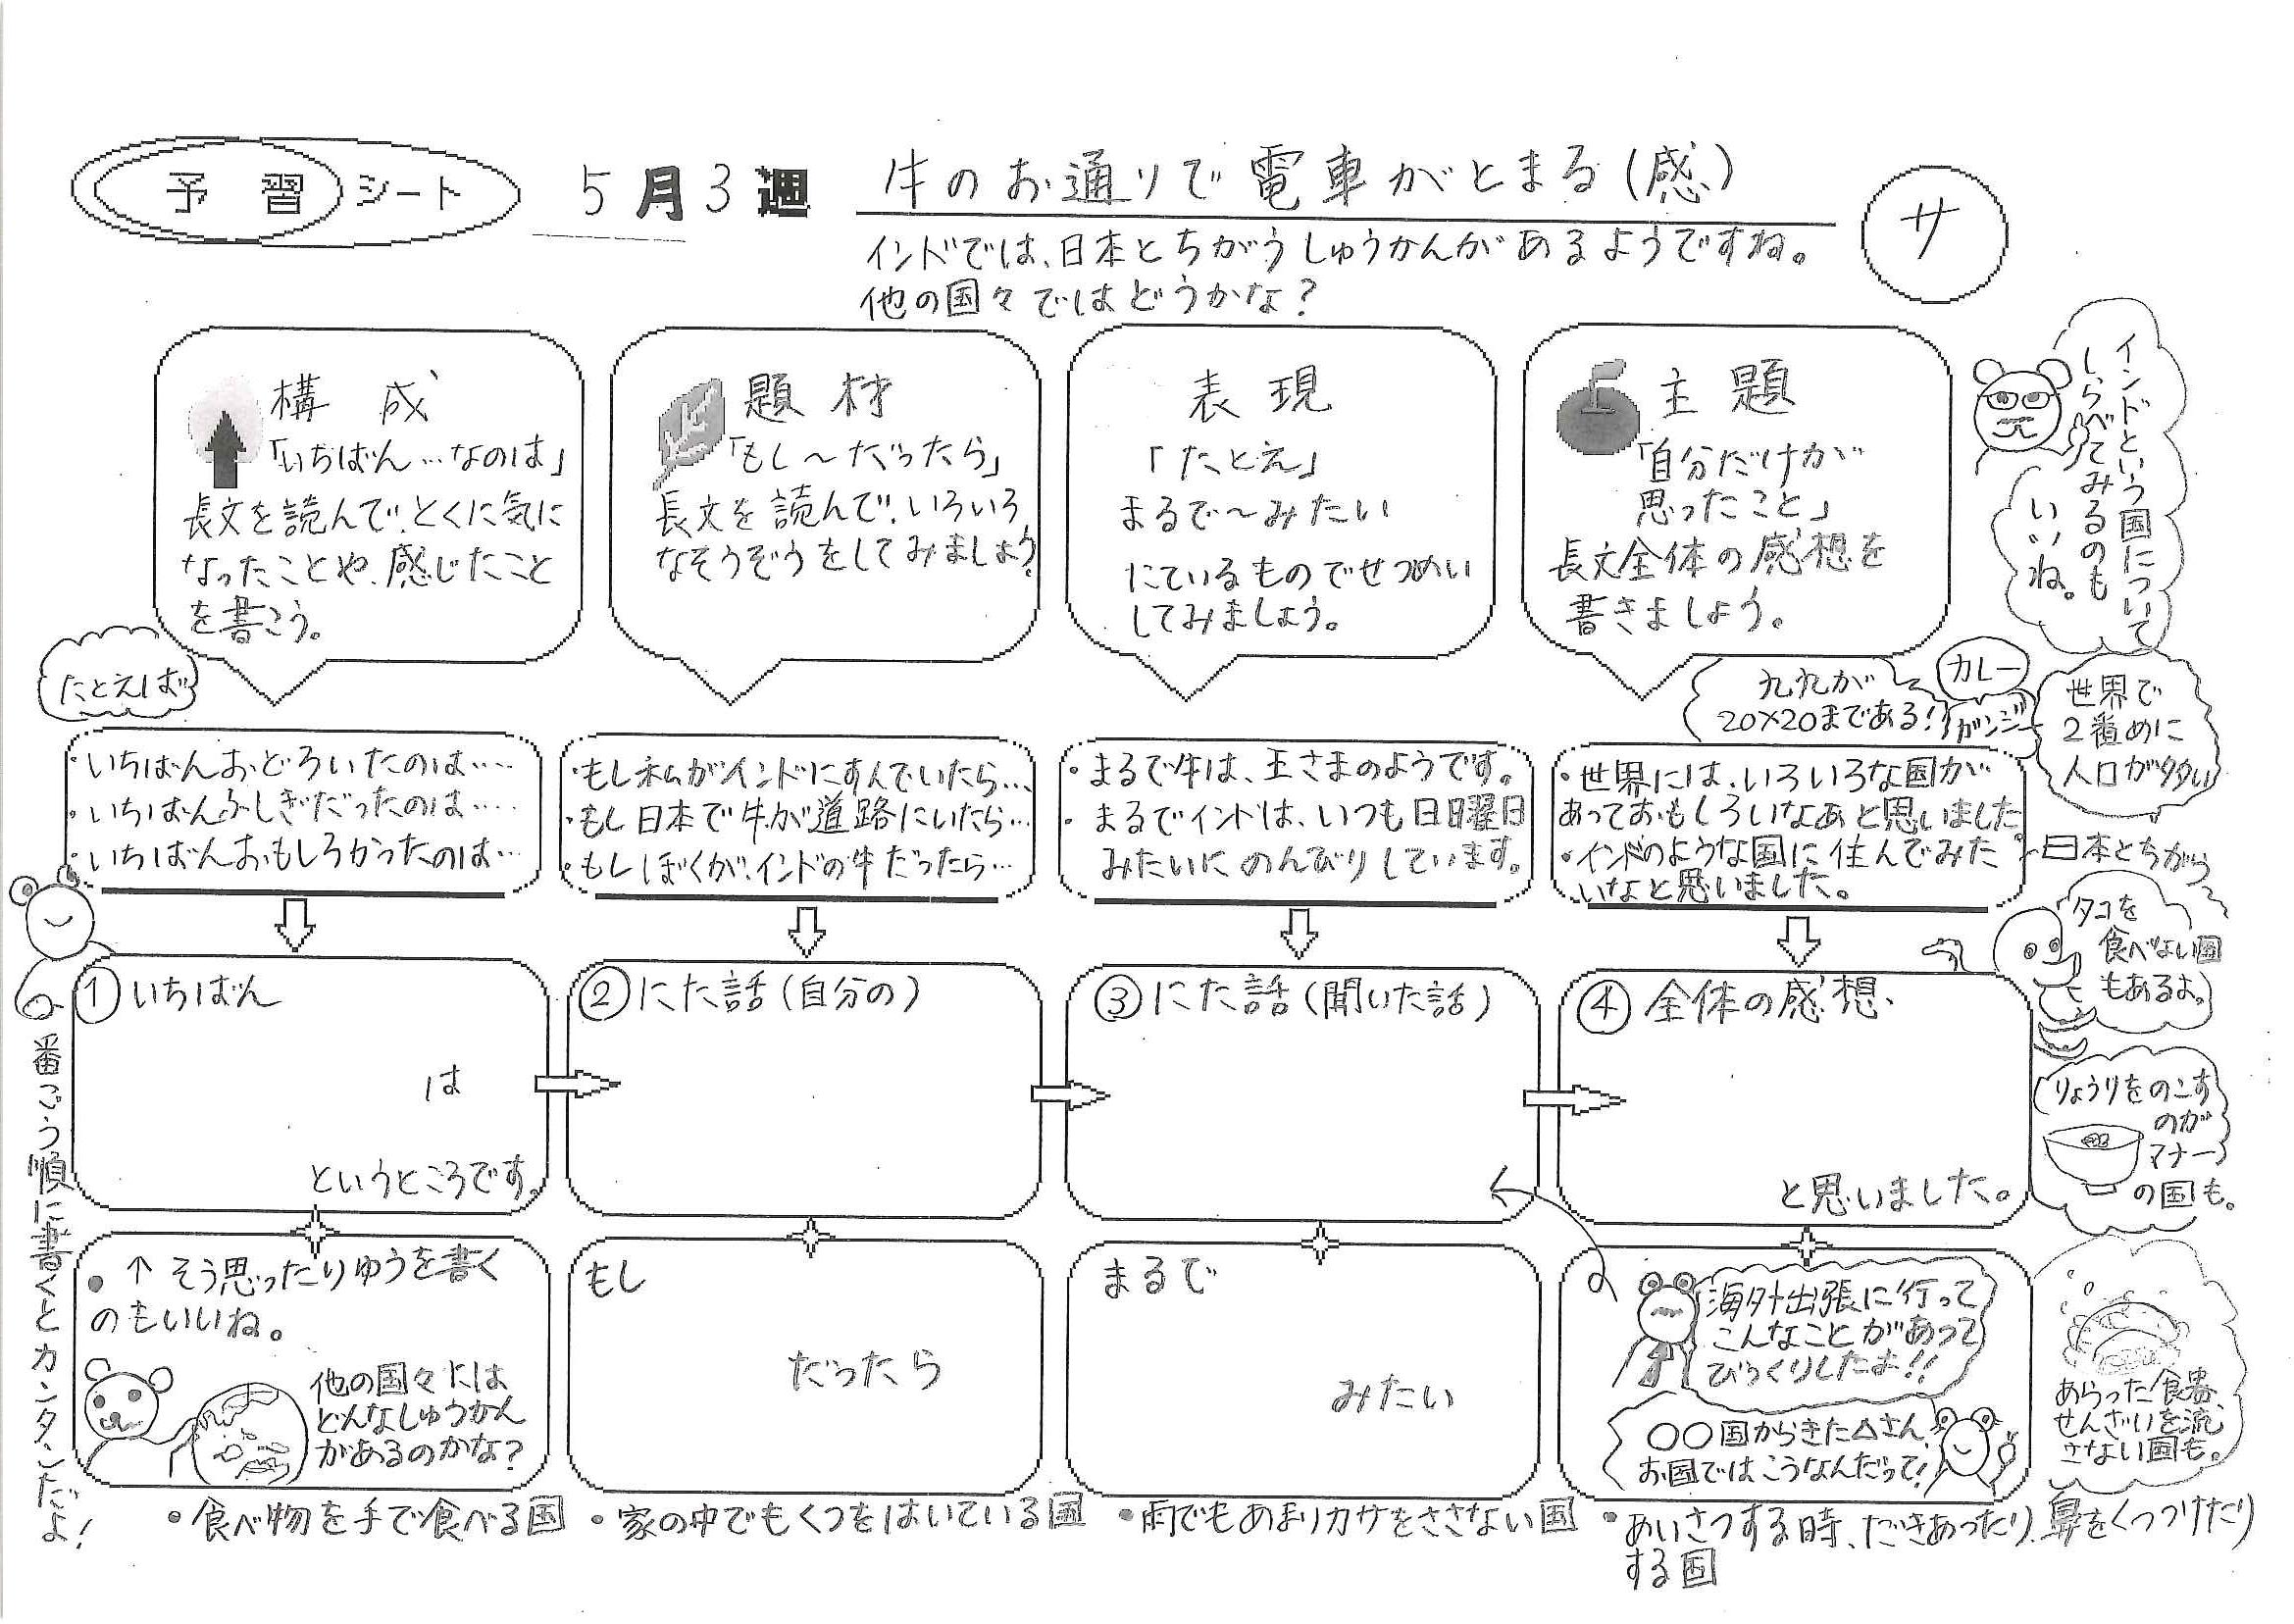 予習シート
5月3週
牛のお通りで電車がとまる(感)
サ
インドでは、日本とちがうしゅうかんがあるようですね。
他の国々ではどうかな?
構成
「いちばん…なのは」
長文を読んで、とくに気に
なったことや、感じたこと
を書こう。
題材
「もし〜だったら」
長文を読んで、いろいろ
なそうぞうをしてみましょう。
表現
「たとえ」
まるで〜みたい
にているものでせつめい
してみましょう。
主題
「自分だけが
思ったこと」
長文全体の感想を
書きましょう。
インドという国について
しらべてみるのも
いいね。
たとえば
・いちばんおどろいたのは……
・いちばんふしぎだったのは……
・いちばんおもしろかったのは…
・もし私がインドにすんでいたら…
・もし日本で牛が道路にいたら…
・もしぼくが、インドの牛だったら…
・まるで牛は、王さまのようです。
・まるでインドは、いつも日曜日
みたいにのんびりしています。
・世界には、いろいろな国が
あっておもしろいなあと思いました。
・インドのような国に住んでみた
いなと思いました。
九九が
20×20まである!
カレー
ガンジー
世界で
2番めに
人口が多い
日本とちがう
タコを
食べない国
もあるよ。
りょうりをのこす
のが
マナー
の国も。
あらった食器、
せんざいを流
さない国も。
番ごう順に書くとカンタンだよ!
①いちばん
は
というところです。
②にた話(自分の)
③にた話(聞いた話)
④全体の感想
と思いました。
●↑そう思ったりゆうを書く
のもいいね。
他の国々には
どんなしゅうかん
があるのかな?
もし
だったら
まるで
みたい
海外出張に行って
こんなことがあって
びっくりしたよ!!
○○国からきた△さん、
お国ではこうなんだって!
●食べ物を手で食べる国
●家の中でもくつをはいている国
●雨でもあまりカサをささない国
●あいさつする時、だきあったり、鼻をくっつけたり
する国